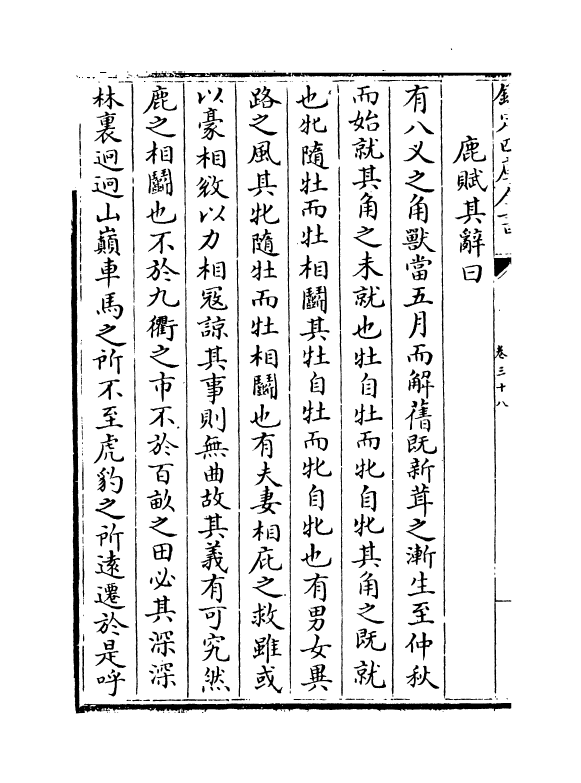 欽定四庫全書
卷三十八
鹿賦其辭曰
有八义之角獸當五月而解舊既新茸之漸生至仲秋
而始就其角之未就也牡自牡而牝自牝其角之既就
也牝隨牡而牡相鬭其牡自牡而牝自牝也有男女異
路之風其牝隨牡而牡相鬭也有夫妻相庇之救雖或
以豪相敓以力相寇諒其事則無曲故其義有可究然
鹿之相鬭也不於九衢之市不於百畝之田必其深深
林裏迥迥山巔車馬之所不至虎豹之所遠遷於是呼